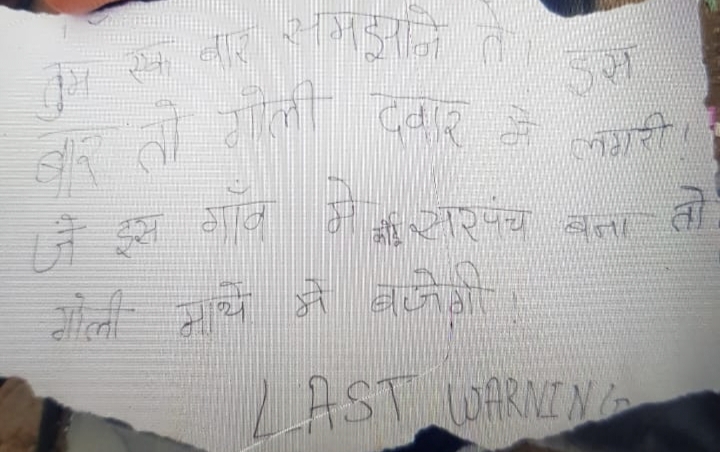 तुम एक बार समझाने ते। इस
बार तो गोली दवार मे लगरी!
जे इस गाँव मे कोई सरपंच बना तो
गोली माथे मे बजेगी!
LAST WARNING